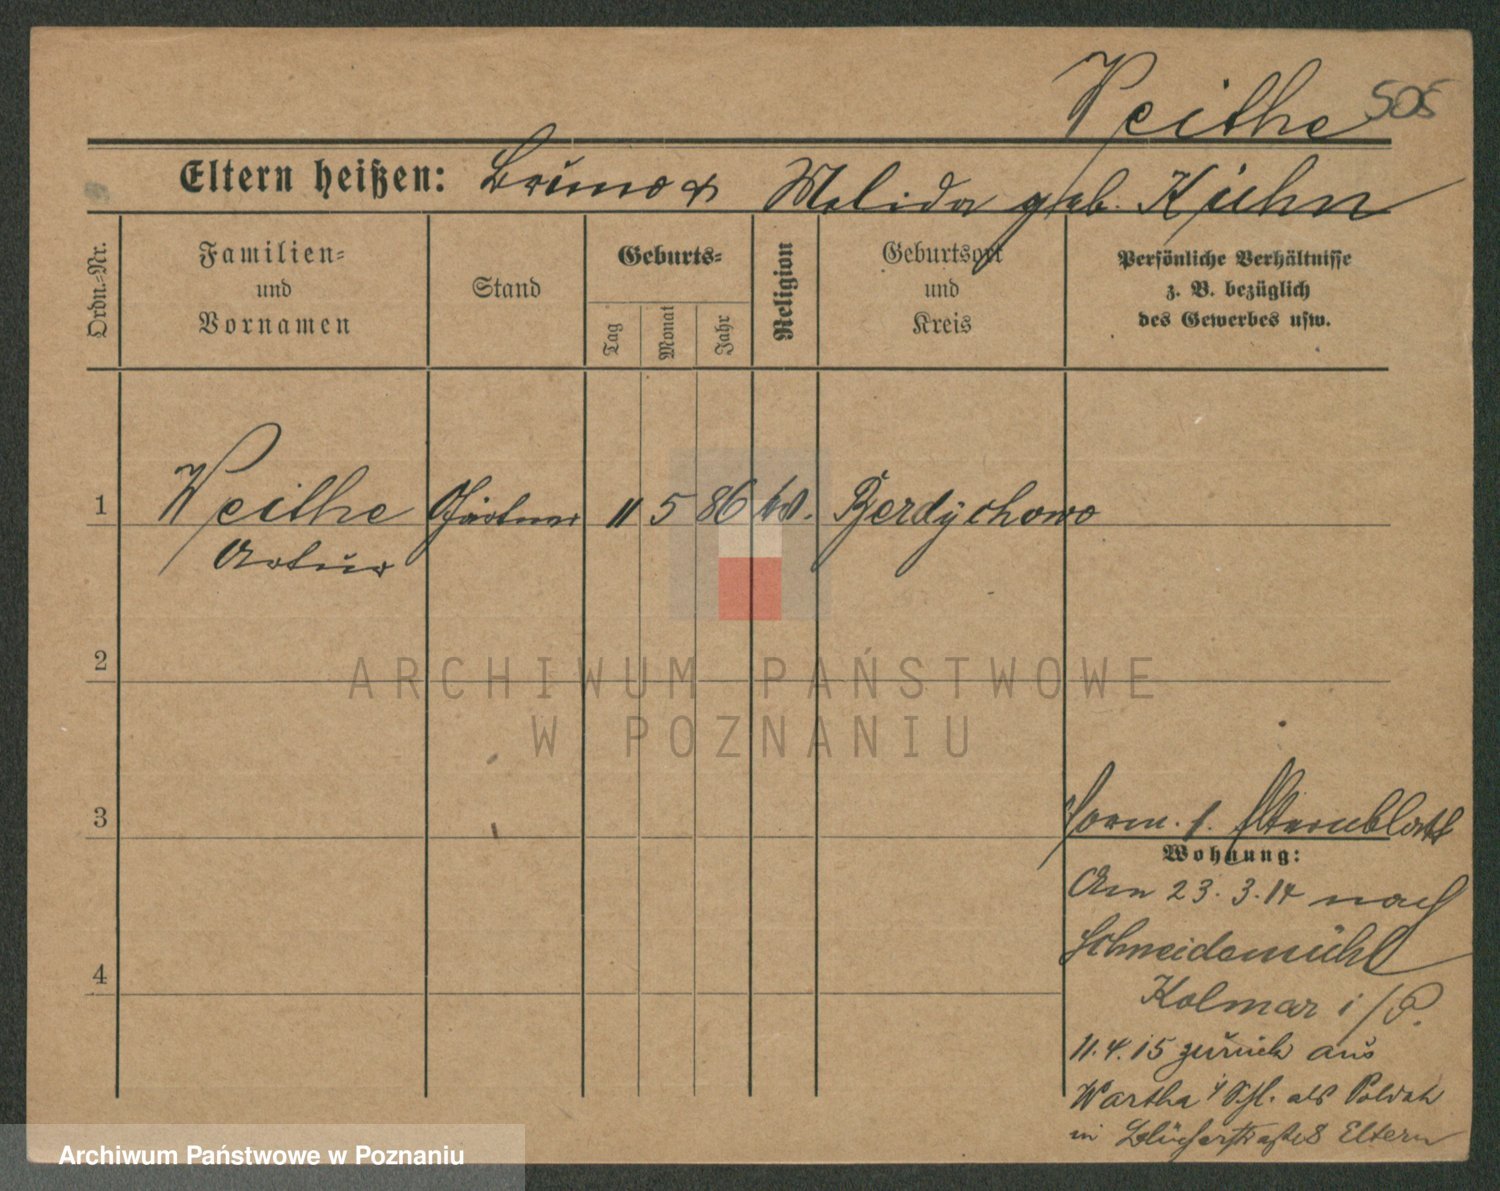 Veithe 505
Eltern heißen: Bruno & Melida geb. Kühn
Ordn.-Nr.
Familien-
und
Vornamen
Stand
Geburts-
Tag
Monat
Jahr
Religion
Geburtsort
und
Kreis
Persönliche Verhältnisse
z. B. bezüglich
des Gewerbes usw.
1 Veithe Gärtner 11 5 86 Berdychowo
Artur
ARCHIWUM PAŃSTWOWE
W POZNANIU
2
3
4
form. s. Elternblatt
Wohnung:
Am 23.3.14 nach
Schneidemühl
Kolmar i/P.
11.4.15 zurück aus
Wartha i/Schl. als Soldat
in Blücherstraße 8 Eltern
Archiwum Państwowe w Poznaniu